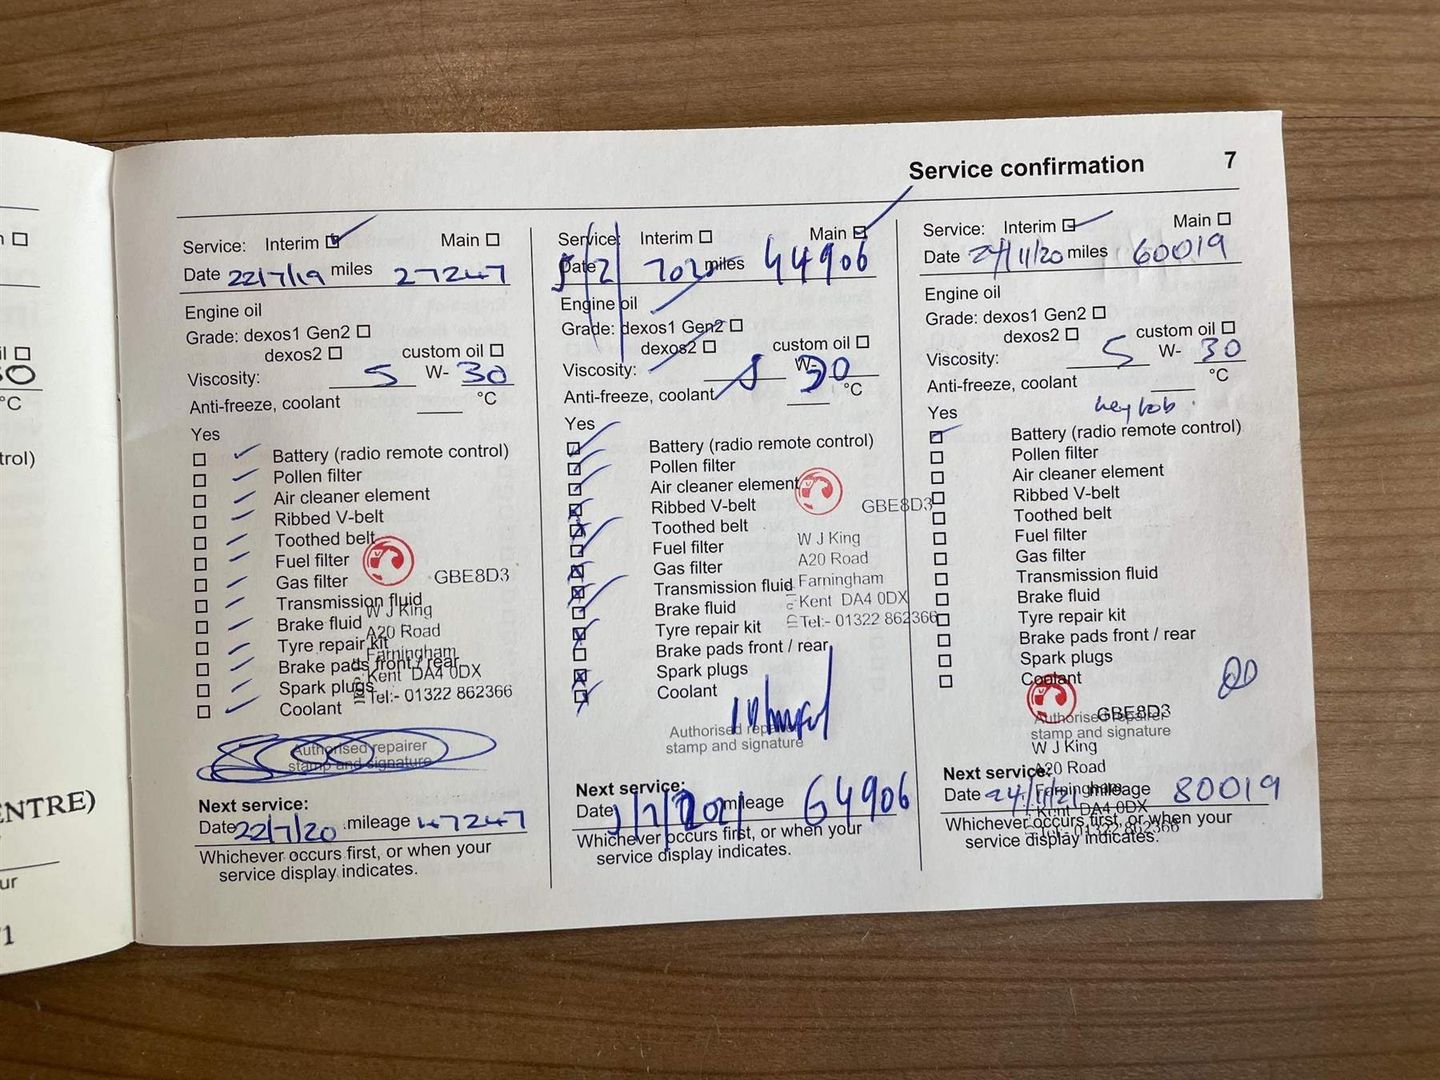 Service confirmation 7
Service: Interim Main
Date 22/7/19 miles 27247
Engine oil
Grade: dexos1 Gen2
dexos2 custom oil
Viscosity: 5 W- 30
Anti-freeze, coolant °C
Yes
Battery (radio remote control)
Pollen filter
Air cleaner element
Ribbed V-belt
Toothed belt
Fuel filter
Gas filter
Transmission fluid
Brake fluid
Tyre repair kit
Brake pads front / rear
Spark plugs
Coolant
GBE8D3
W J King
A20 Road
Farningham
Kent DA4 0DX
Tel:- 01322 862366
Authorised repairer
stamp and signature
Next service:
Date 22/7/20 mileage 47247
Whichever occurs first, or when your
service display indicates.
Service: Interim Main
Date 5/2/2020 miles 44906
Engine oil
Grade: dexos1 Gen2
dexos2 custom oil
Viscosity: 5 W- 30
Anti-freeze, coolant °C
Yes
Battery (radio remote control)
Pollen filter
Air cleaner element
Ribbed V-belt
Toothed belt
Fuel filter
Gas filter
Transmission fluid
Brake fluid
Tyre repair kit
Brake pads front / rear
Spark plugs
Coolant
GBE8D3
W J King
A20 Road
Farningham
Kent DA4 0DX
Tel:- 01322 862366
Authorised repairer
stamp and signature
Next service:
Date mileage 64906
Whichever occurs first, or when your
service display indicates.
Service: Interim Main
Date 24/11/20 miles 60019
Engine oil
Grade: dexos1 Gen2
dexos2 custom oil
Viscosity: 5 W- 30
Anti-freeze, coolant °C
key fob.
Yes
Battery (radio remote control)
Pollen filter
Air cleaner element
Ribbed V-belt
Toothed belt
Fuel filter
Gas filter
Transmission fluid
Brake fluid
Tyre repair kit
Brake pads front / rear
Spark plugs
Coolant
GBE8D3
Authorised repairer
stamp and signature
W J King
A20 Road
Farningham
Kent DA4 0DX
Tel:- 01322 862366
Next service:
Date 24/11/21 mileage 80019
Whichever occurs first, or when your
service display indicates.
trol)
°C
ENTRE)
ur